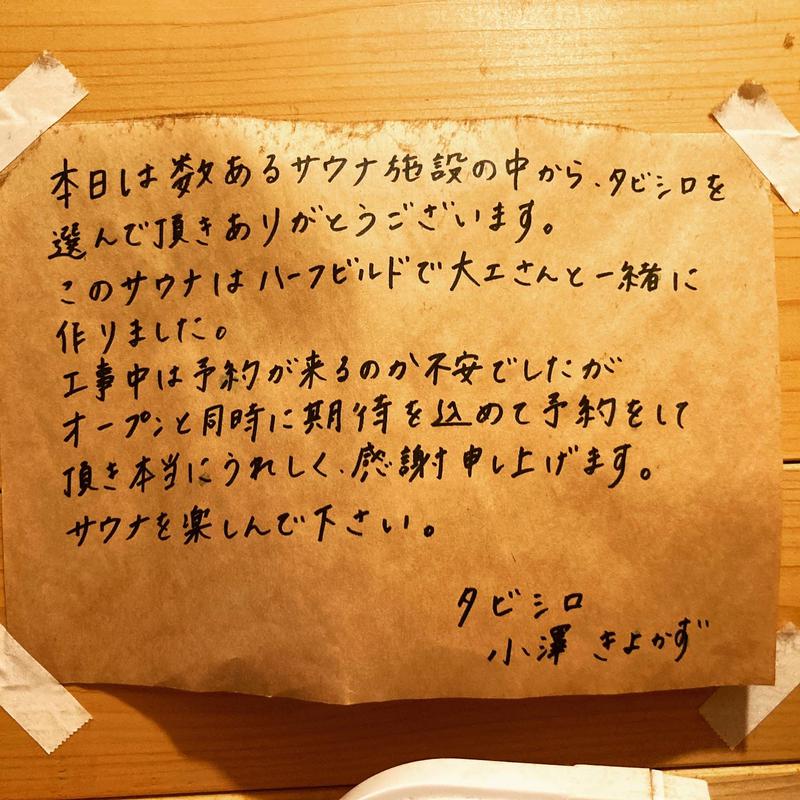 本日は数あるサウナ施設の中から、タビシロを
選んで頂きありがとうございます。
このサウナはハーフビルドで大工さんと一緒に
作りました。
工事中は予約が来るのか不安でしたが
オープンと同時に期待を込めて予約をして
頂き本当にうれしく、感謝申し上げます。
サウナを楽しんで下さい。
タビシロ
小澤 きよかず